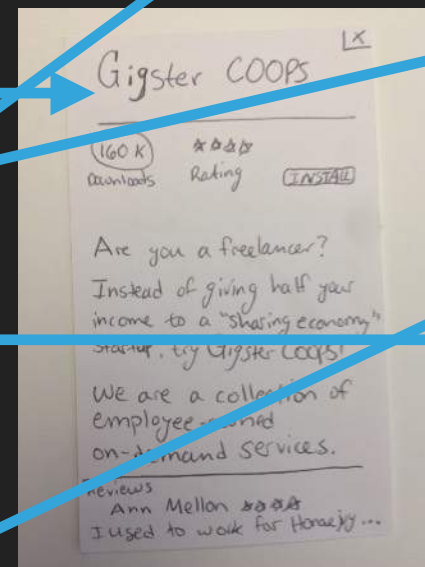 X
Gigster COOPS
160 K ☆☆☆☆
Downloads Rating INSTALL
Are you a freelancer?
Instead of giving half your
income to a "sharing economy"
startup, try Gigster Coops!
We are a collection of
employee-owned
on-demand services.
Reviews
Ann Mellon ☆☆☆☆
I used to work for